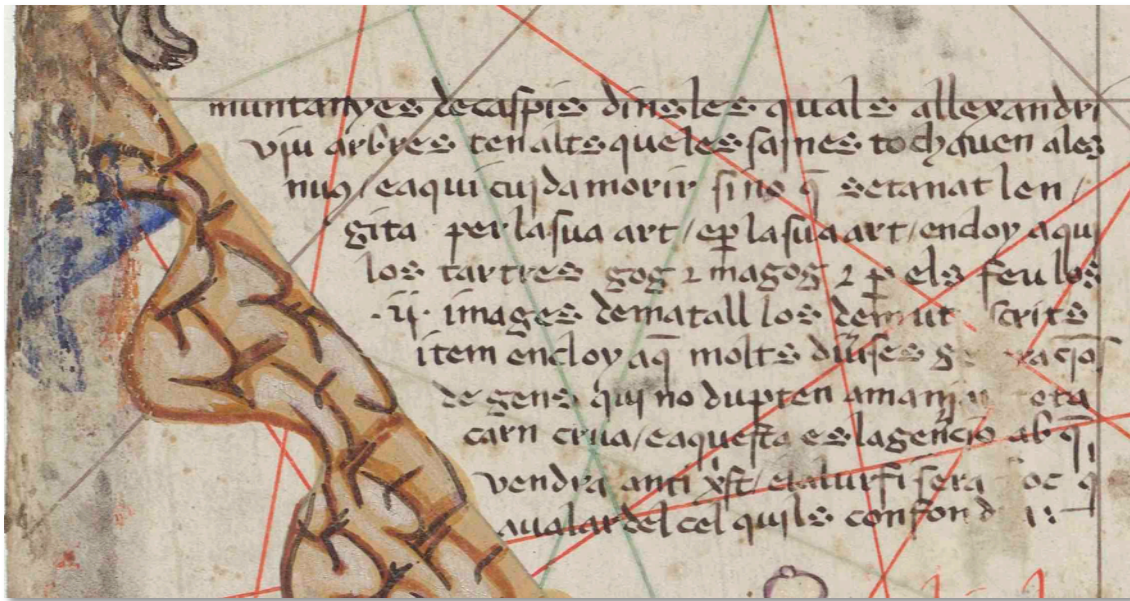 muntanyes de caspis dins les quals allexandri
viu arbres ten alts que les saines tochauen ales
nuus / e aqui cuida morir sino q̄ setanat len /
gita per la sua art / e ꝑ la sua art / encloy aqui
los tartres gog ⁊ magog ⁊ ꝑ els feu los
·ij· images de matall los demut scrits
item encloy aq̄ molts diuses
de gens qui no dupten a manjar tota
carn crua / e aquesta es la generacio ab q̄
vendra anti x̄st / e la lur fi sera foc q̄
aualar del cel quils confond